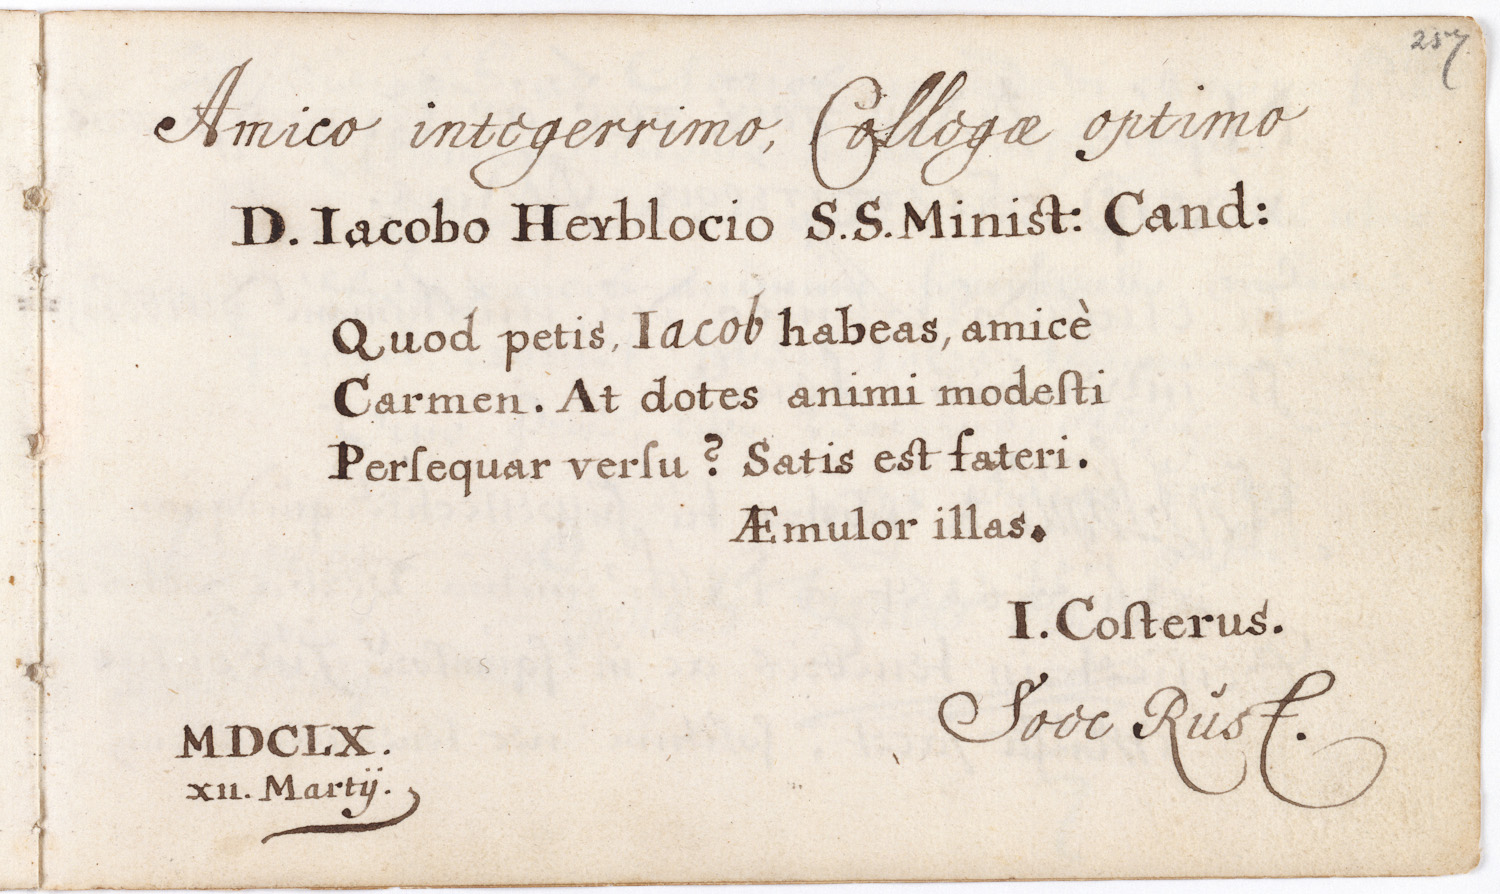 257
Amico integerrimo, Collegæ optimo
D. Iacobo Heyblocio S.S. Minist: Cand:
Quod petis, Iacob habeas, amicè
Carmen. At dotes animi modeſti
Perſequar verſu? Satis est fateri.
Æmulor illas.
I. Coſterus.
Sooc Rúst.
MDCLX.
XII. Martij.